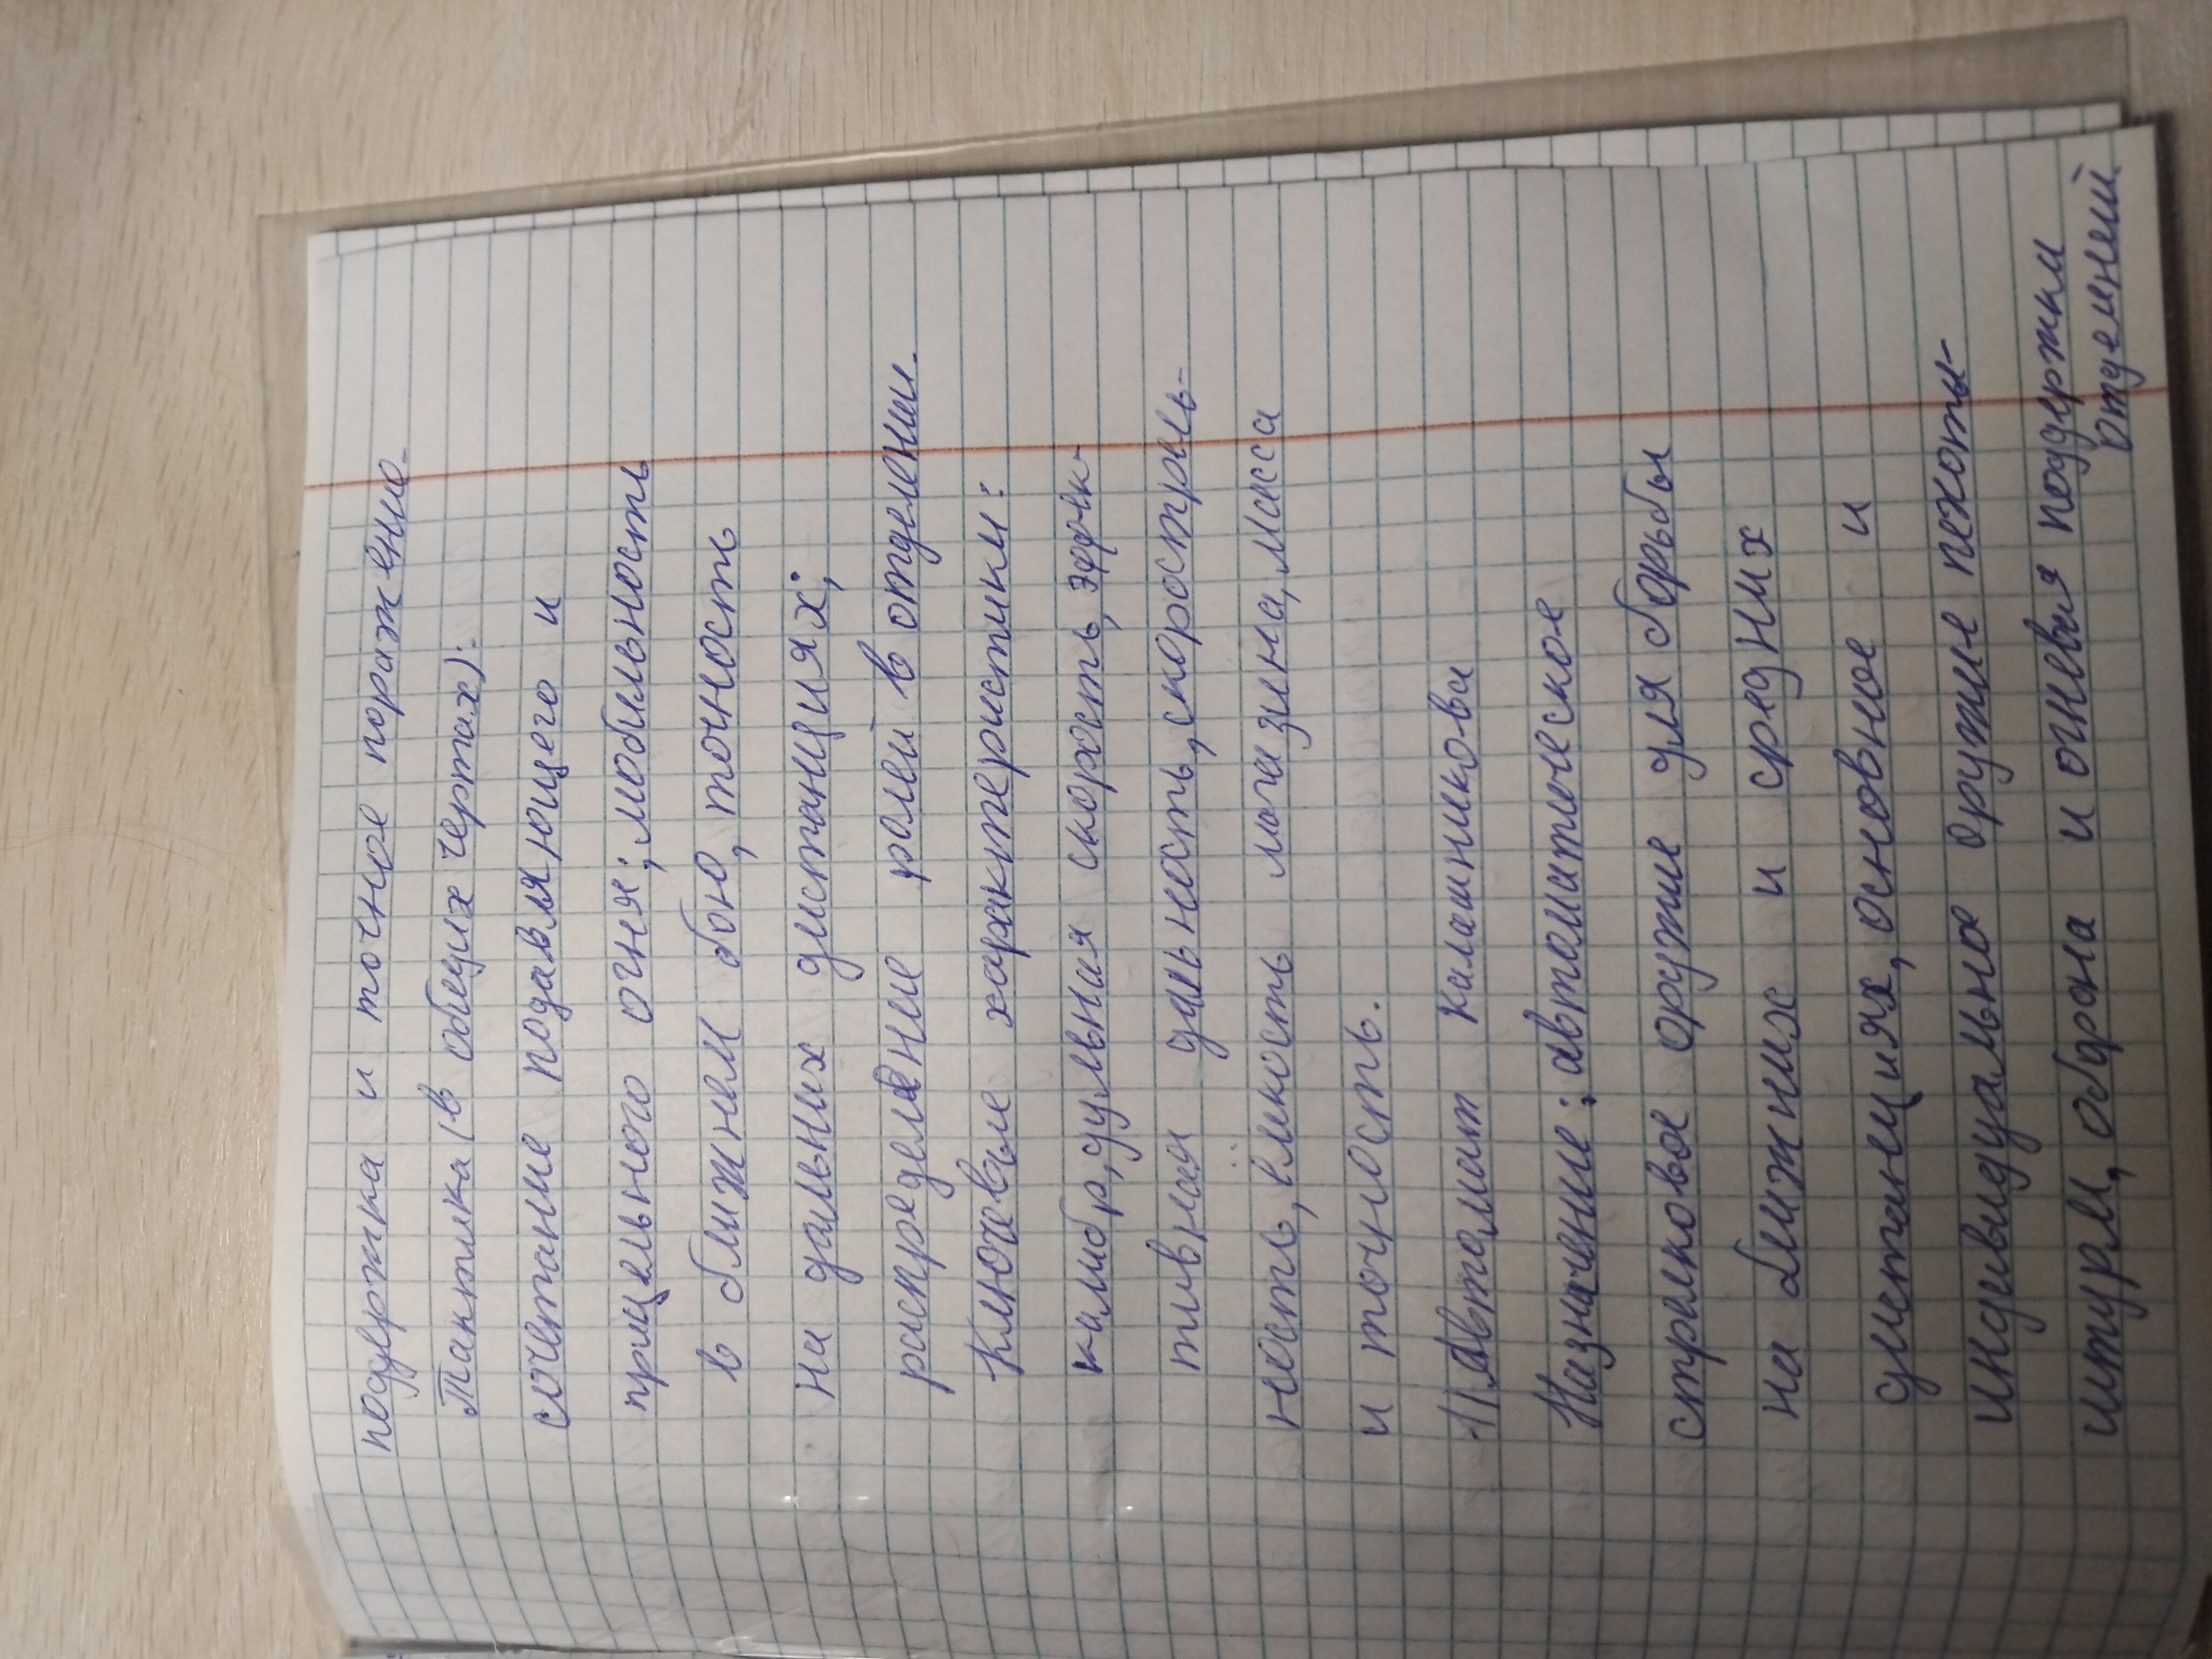 подержка и точное поражение.
Тактика (в общих чертах):
сочетание подавляющего и
прицельного огня; мобильность
в ближнем бою, точность
на дальних дистанциях;
распределение ролей в отделении.
Ключевые характеристики:
калибр, дульная скорость, эффек-
тивная дальность, скорострель-
ность, емкость магазина, масса
и точность.
1) Автомат Калашникова
Назначение: автоматическое
стрелковое оружие для борьбы
на ближних и средних
дистанциях, основное и
индивидуально оружие пехоты-
штурм, оборона и огневая подержки
отделений